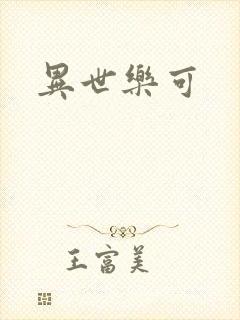 異世樂可
王富美